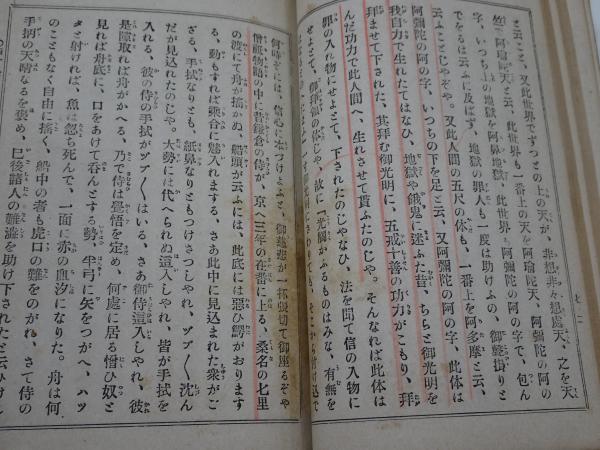 七二
と云こと、又此世界でずつとの上の天が、非想非々想處天、之を天
竺で阿瑠陀天と云、此世界も一番上の天を阿瑠陀天、阿彌陀の阿の
字、いつち上の地獄を阿鼻地獄、此世界を阿彌陀の阿の字で、包ん
でをるは云ふに及ばず、地獄の罪人も一度は助けふの、御聲掛りと
云ふことじやぞな。又此人間の五尺の体も、一番上を阿多摩と云、
阿彌陀の阿の字、いつちの下を足と云、又阿彌陀の阿の字、此体は
我自力で生れたではなひ、地獄や餓鬼に迷ふた昔、ちらと御光明を
拜ませて下された、其拜む御光明に、五戒十善の功力がこもり、拜
んだ功力で此人間へ、生れさせて貰ふたのじや。そんなれば此体は
罪の入れ物にせよとて、下されたのじやなひ、法を聞て信の入物に
せよとて、御拜領の体じや、故に一光觸かふるものはみな、有無を
何時そには、信心に本つけよふと、御慈悲が一杯張切て御座るぞや
僧祇物語の中に昔鎌倉の侍が、京へ三年の在番に上る、桑名の七里
の渡にて舟が搖かぬ、船頭が云ふには、此底には惡ひ鰐がおります
る、動もすれば乘合に魅入れまする、さあ此中に見込まれた衆がご
ざる、手拭なりとも、紙鼻なりともつけさつしやれ、ヅブ〱沈ん
だが見込れたのじや。大勢には代へられぬ這入しやれ、皆が手拭を
入れる、彼の侍の手拭がヅブ〱はいる、さあ御侍這入しやれ、彼
是障取れば舟がかへる、乃で侍は覺悟を定め、何處に居る憎ひ奴と
見れば舟底に、口をあけて呑んとする勢、半弓に矢をつがへ、ハツ
タと射ければ、魚は忽ち死んで、一面に赤の血汐になりた。舟は何
のこともなく自由に搖く、船中の者も虎口の難をのがれ、さて侍の
手柄の天晴なるを褒め、巳後諸人の難澁を助け下されたと云ひけれ